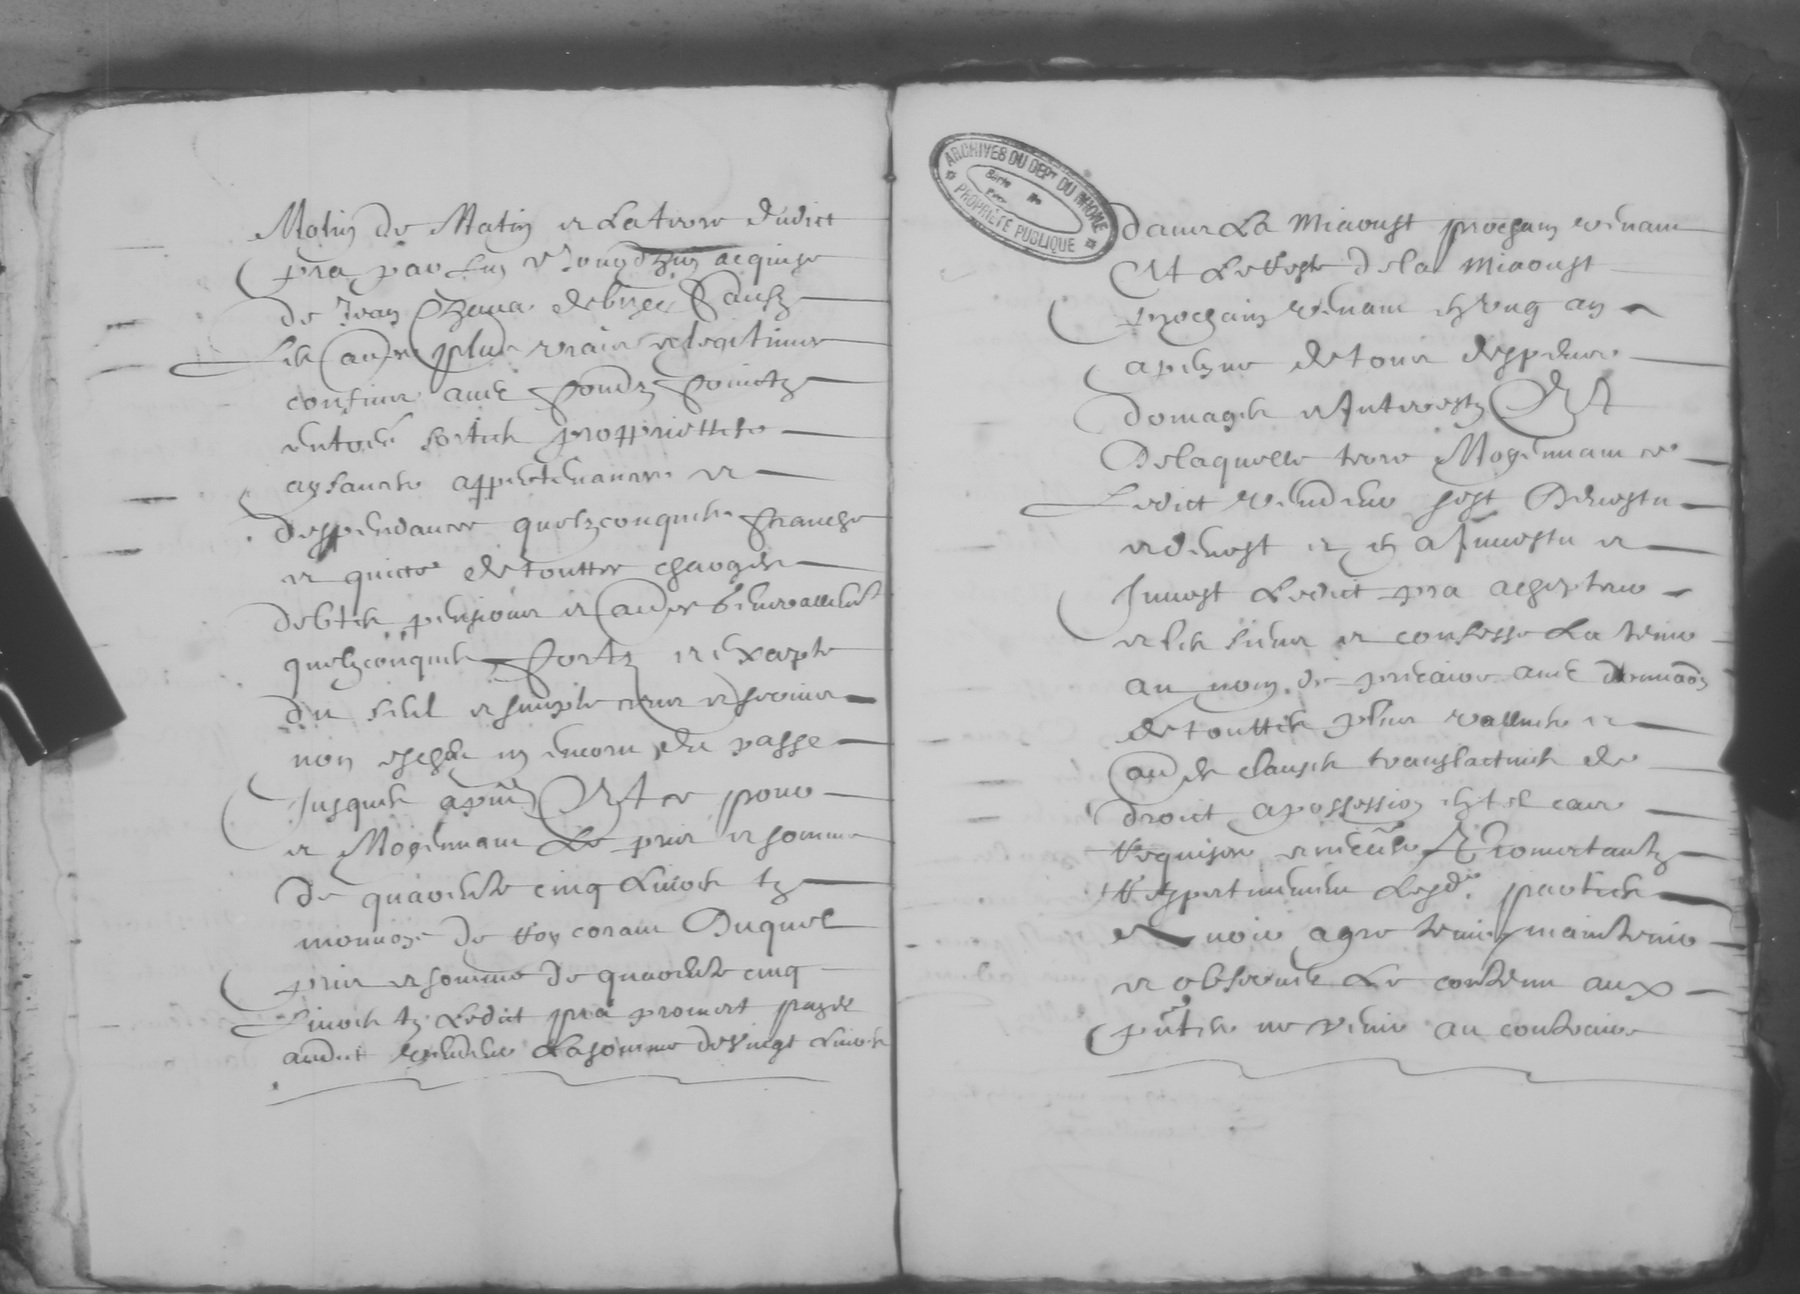 Matin de Matin et la terre dudict
pra par luy acquise
de Jean
les aues plus vraies et legitimes
confins avec fondz
entrées sorties proprietes
aysances appertenances et
deppendances quelzconques franche
et quicte de touttes charges
debtes pensions et aues
quelzconques fors et excepte
du seul et simple cens et servis
non esgallé ny encoru du passe
jusques a pnt Et ce pour
et Moyennant le pris et somme
de quarente cinq livres tz
monnoye de roy corant Duquel
pris et somme de quarente cinq
livres tz ledict pra promect payer
audict vendeur la somme de vingt livres
ARCHIVES DU DEPT DU RHONE
PROPRIÉTÉ PUBLIQUE
dans la Miaoust prochain venant
Et le reste de la Miaoust
prochain venant en ung an
a peyne de tous despens
domages et Interestz Et
De laquelle terre Moyennant ce
Ledict vendeur sest Devestu
et devest et en a Investu et
Invest ledict pra achepteur
et les siens et confesse la tenir
au nom de precaire avec
de touttes plus vallues et
aues clauses translactives de
droict a possession en tel cas
requises et Promectantz
respectivement lesd. parties
avoir agre tenir maintenir
et observer le contenu aux
pntes ne venir au contraire